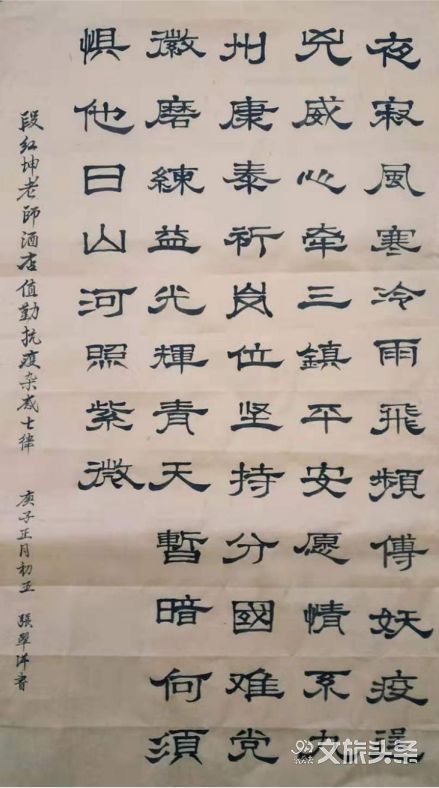 夜寂風寒冷雨飛頻傳妖疫逞
兇威心牽三鎮平安愿情系九
州康泰祈岗位坚持分國难党
徽磨練益光輝青天暫暗何須
惧他日山河照紫微
段红坤老師酒店值勤抗疫杂感七律 庚子正月初五 張翠洋書
文旅头条